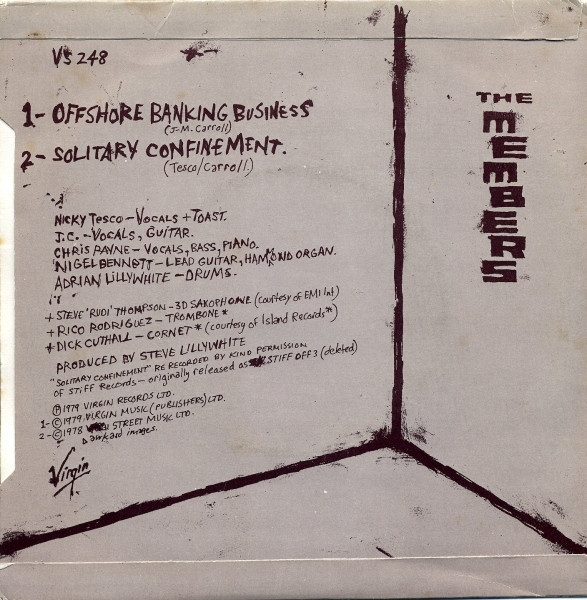 VS 248
1- OFFSHORE BANKING BUSINESS
(J-M. Carroll)
2- SOLITARY CONFINEMENT.
(Tesco/Carroll.)
NICKY TESCO - VOCALS + TOAST.
J.C. - VOCALS, GUITAR.
CHRIS PAYNE - VOCALS, BASS, PIANO.
NIGEL BENNETT - LEAD GUITAR, HAMMOND ORGAN.
ADRIAN LILLYWHITE - DRUMS.
+ STEVE 'RUDI' THOMPSON - 3D SAXOPHONE (courtesy of EMI Int)
+ RICO RODRIGUEZ - TROMBONE *
+ DICK CUTHALL - CORNET * (courtesy of Island Records *)
PRODUCED BY STEVE LILLYWHITE
"SOLITARY CONFINEMENT" RE RECORDED BY KIND PERMISSION
OF STIFF RECORDS - originally released as STIFF OFF 3 (deleted)
℗ 1979 VIRGIN RECORDS LTD.
1- © 1979 VIRGIN MUSIC (PUBLISHERS) LTD.
2- © 1978 STREET MUSIC LTD.
awkard images.
Virgin
THE
MEMBERS